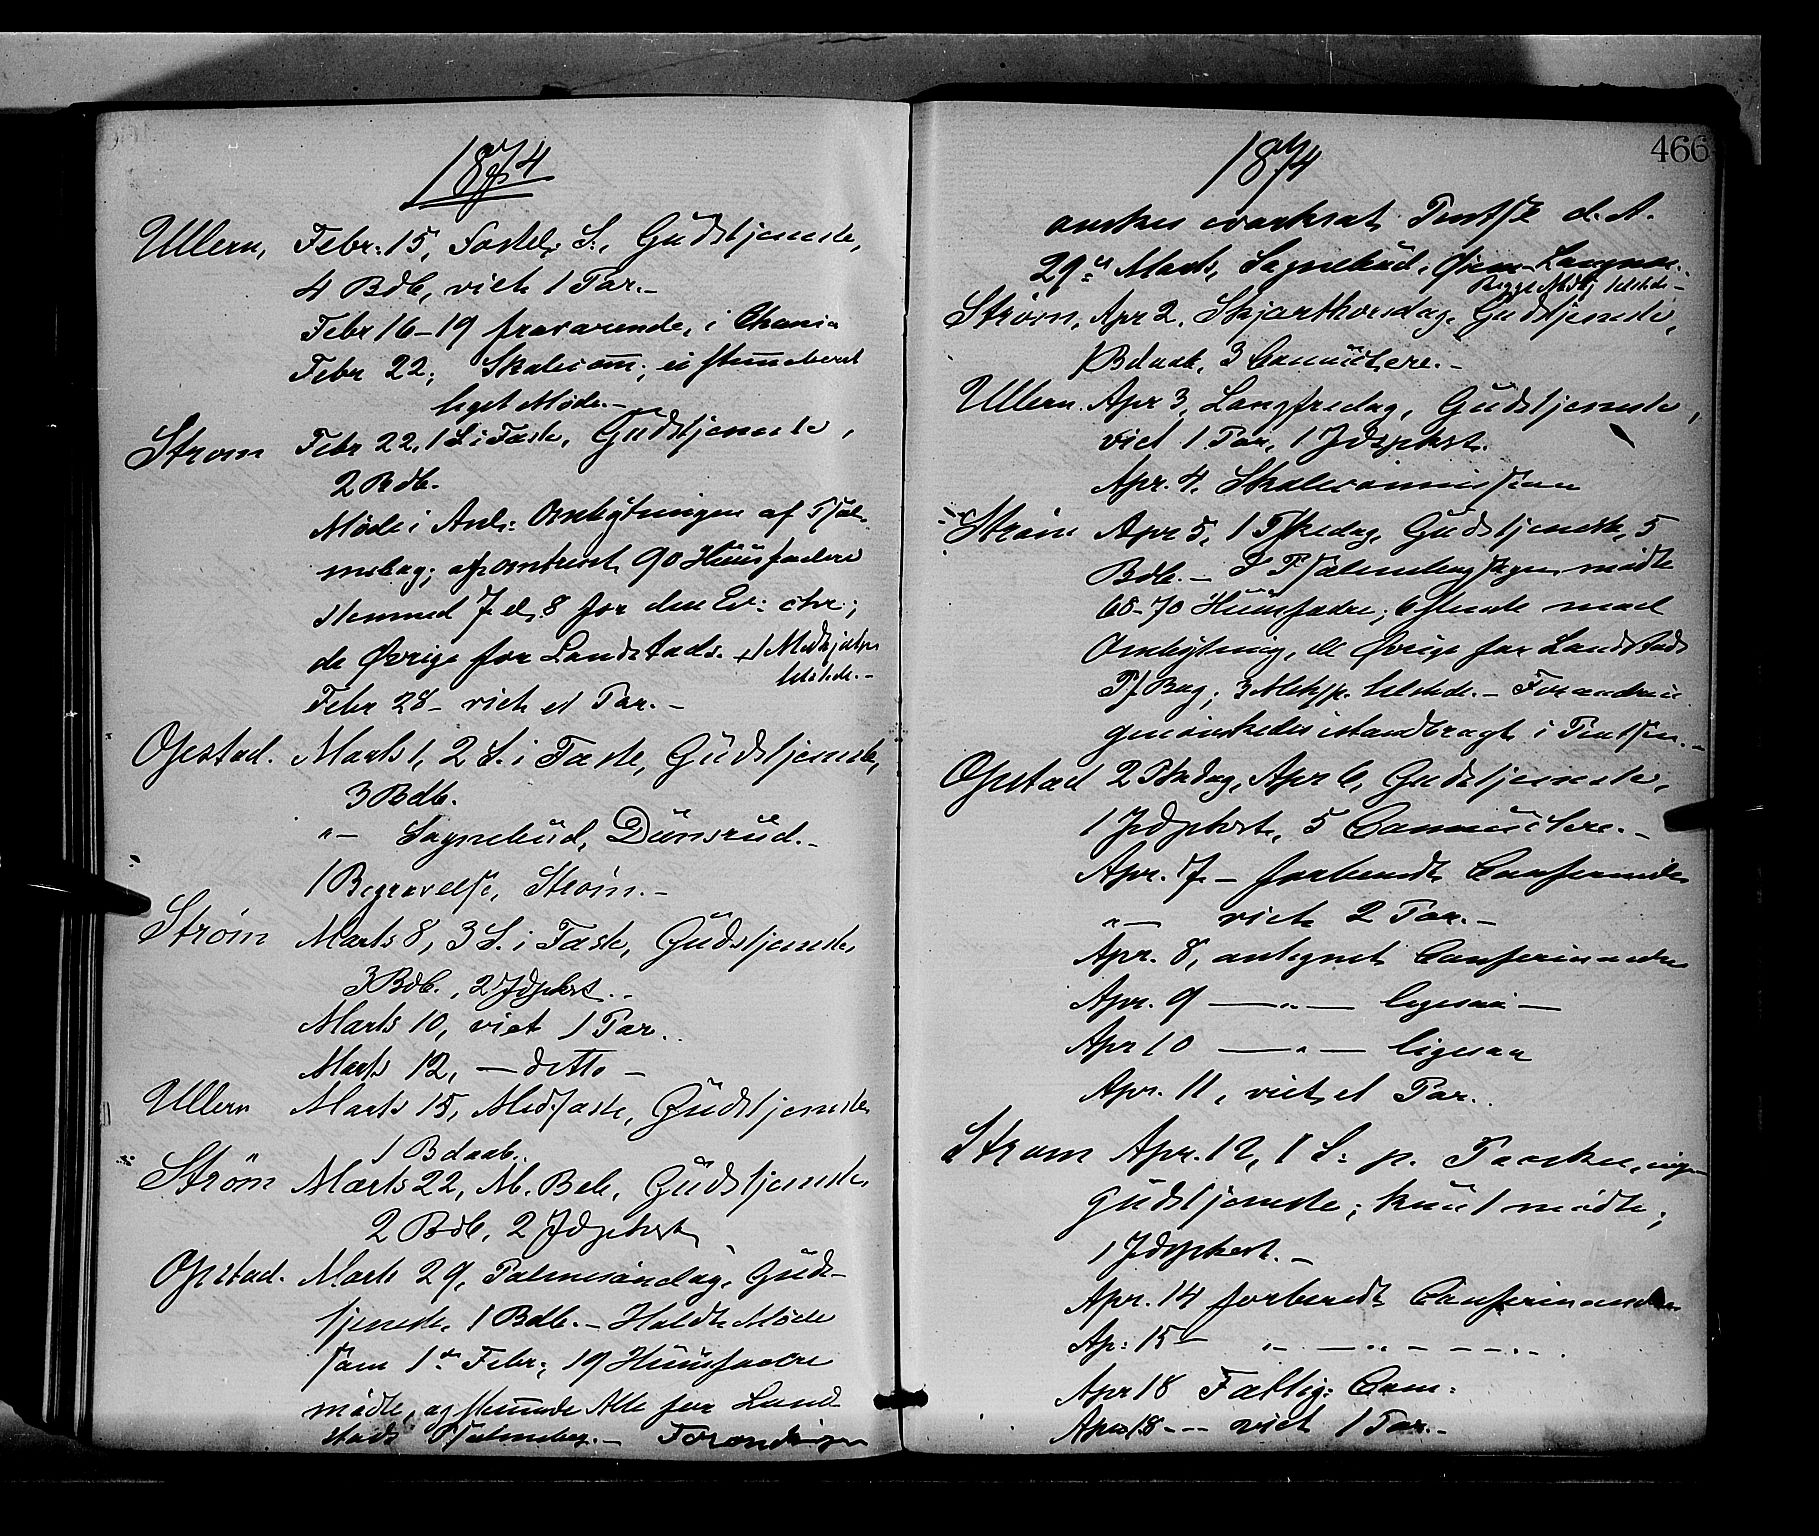 1874
Ullern, Febr. 15, Fastel. S., Gudstjeneste,
4 Bdb, viet 1 Par.-
Febr 16-19 fraværende, i Chania
Febr 22; Skolecom̄;
liget Møde.-
Strøm Febr 22, 1 S. i Faste, Gudstjeneste,
2 Bdb.
Møde i Anl: Ombytningen af Psal-
mebog; af omtrent 90 Huusfædre
stemmed 7 el. 8 for den Ev: chr;
de Øvrige for Landstads.
Febr 28- viet et Par.-
Opstad. Marts 1, 2 S. i Faste, Gudstjeneste,
3 Bdb.
"- Sognebud, Dunsrud.-
1 Begravelse, Strøm.-
Strøm Marts 8, 3 S. i Faste, Gudstjeneste
3 Bdb., 2 Jdpkst..
Marts 10, viet 1 Par.
Marts 12, - ditto -
Ullern Marts 15, Midfaste, Gudstjeneste
1 Bdaab.
Strøm Marts 22, M. Beb, Gudstjeneste
2 Bdb, 2 Jdpkst
Opstad. Marts 29, Palmesøndag, Guds-
tjeneste, 1 Bdb.- Holdt Møde
som 1ste Febr; 19 Huusfædre
mødte, og stemmede Alle for Land
stads Psalmebog.- Forandringen
466
1874
ønskes iværksat Pintse d. A.
29de Marts, Sognebud,
Strøm, Apr 2, Skjærthorsdag, Gudstjeneste,
1 Bdaab, 3 Com̄unicere.-
Ullern. Apr 3, Langfredag, Gudstjeneste,
viet 1 Par, 1 Jdspkst.
Apr. 4, Skolecommission
Strøm Apr 5, 1 Pskedag, Gudstjeneste, 5
Bdb.- I Psalmebogsagen mødte
68-70 Huusfædre; 6 stemte mod
Ombytning, de Øvrige for Landstads
Ps. Bog;
i Pintsen.-
Opstad 2 Pskdag, Apr 6, Gudstjeneste,
1 Jdspkst, 5 Communicere.-
Apr. 7- forberedt Confirmander
"- viet 2 Par.-
Apr. 8, antegnet Confirmander
Apr. 9 -"- ligesaa -
Apr 10 -"- ligesaa
Apr. 11, viet et Par.
Strøm Apr. 12, 1 S: p. Paaske, ingen
Gudstjeneste; kun 1 mødte;
1 Jdspkst.-
Apr. 14 forberedt Confirmander
Ap: 15- "- - " - - - " .
Apr 18 Fattig: Com:
Apr 18 - - - viet 1 Par.-